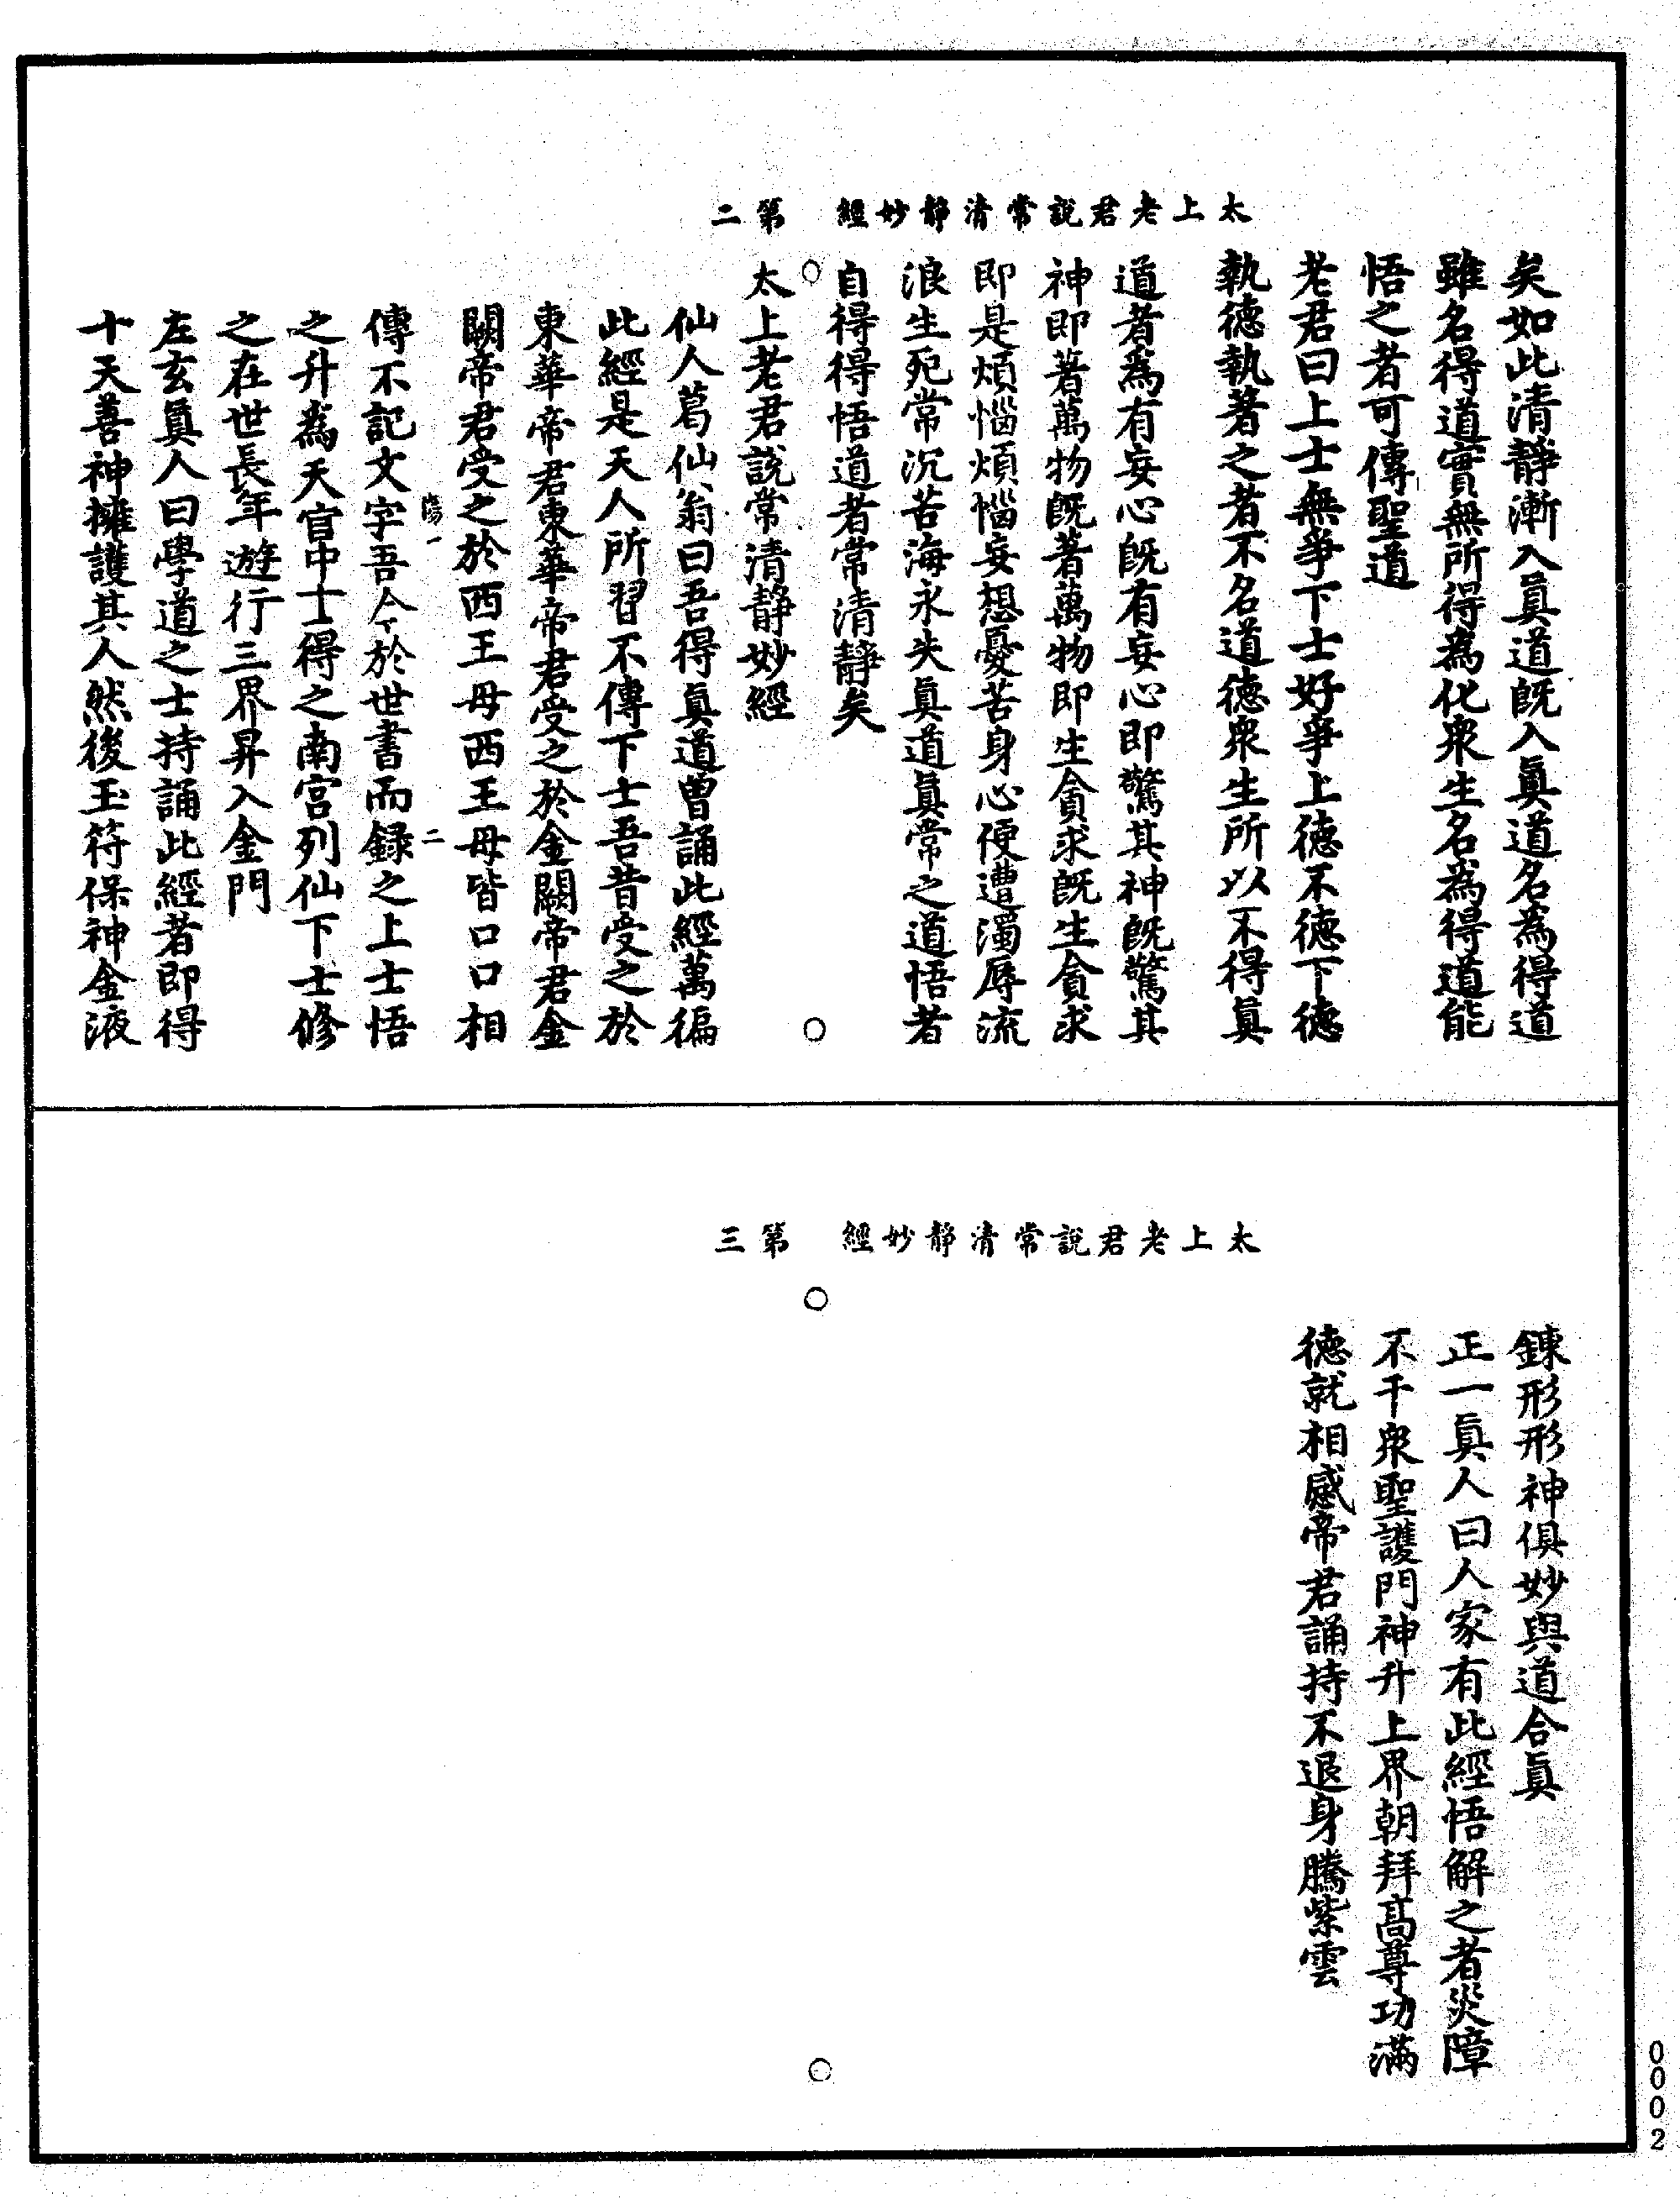 太上老君說常清靜妙經　第二
矣如此清靜漸入眞道旣入眞道名爲得道
雖名得道實無所得爲化衆生名爲得道能
悟之者可傳聖道
老君曰上士無爭下士好爭上德不德下德
執德執著之者不名道德衆生所以不得眞
道者爲有妄心旣有妄心即驚其神旣驚其
神即著萬物旣著萬物即生貪求旣生貪求
即是煩惱煩惱妄想憂苦身心便遭濁辱流
浪生死常沉苦海永失眞道眞常之道悟者
自得得悟道者常清靜矣
太上老君說常清靜妙經
仙人葛仙翁曰吾得眞道曾誦此經萬徧
此經是天人所習不傳下士吾昔受之於
東華帝君東華帝君受之於金闕帝君金
闕帝君受之於西王母西王母皆口口相
傷一　二
傳不記文字吾今於世書而録之上士悟
之升爲天官中士得之南宮列仙下士修
之在世長年遊行三界昇入金門
左玄眞人曰學道之士持誦此經者即得
十天善神擁護其人然後玉符保神金液
太上老君說常清靜妙經　第三
鍊形形神俱妙與道合眞
正一眞人曰人家有此經悟解之者災障
不干衆聖護門神升上界朝拜高尊功滿
德就相感帝君誦持不退身騰紫雲
0002